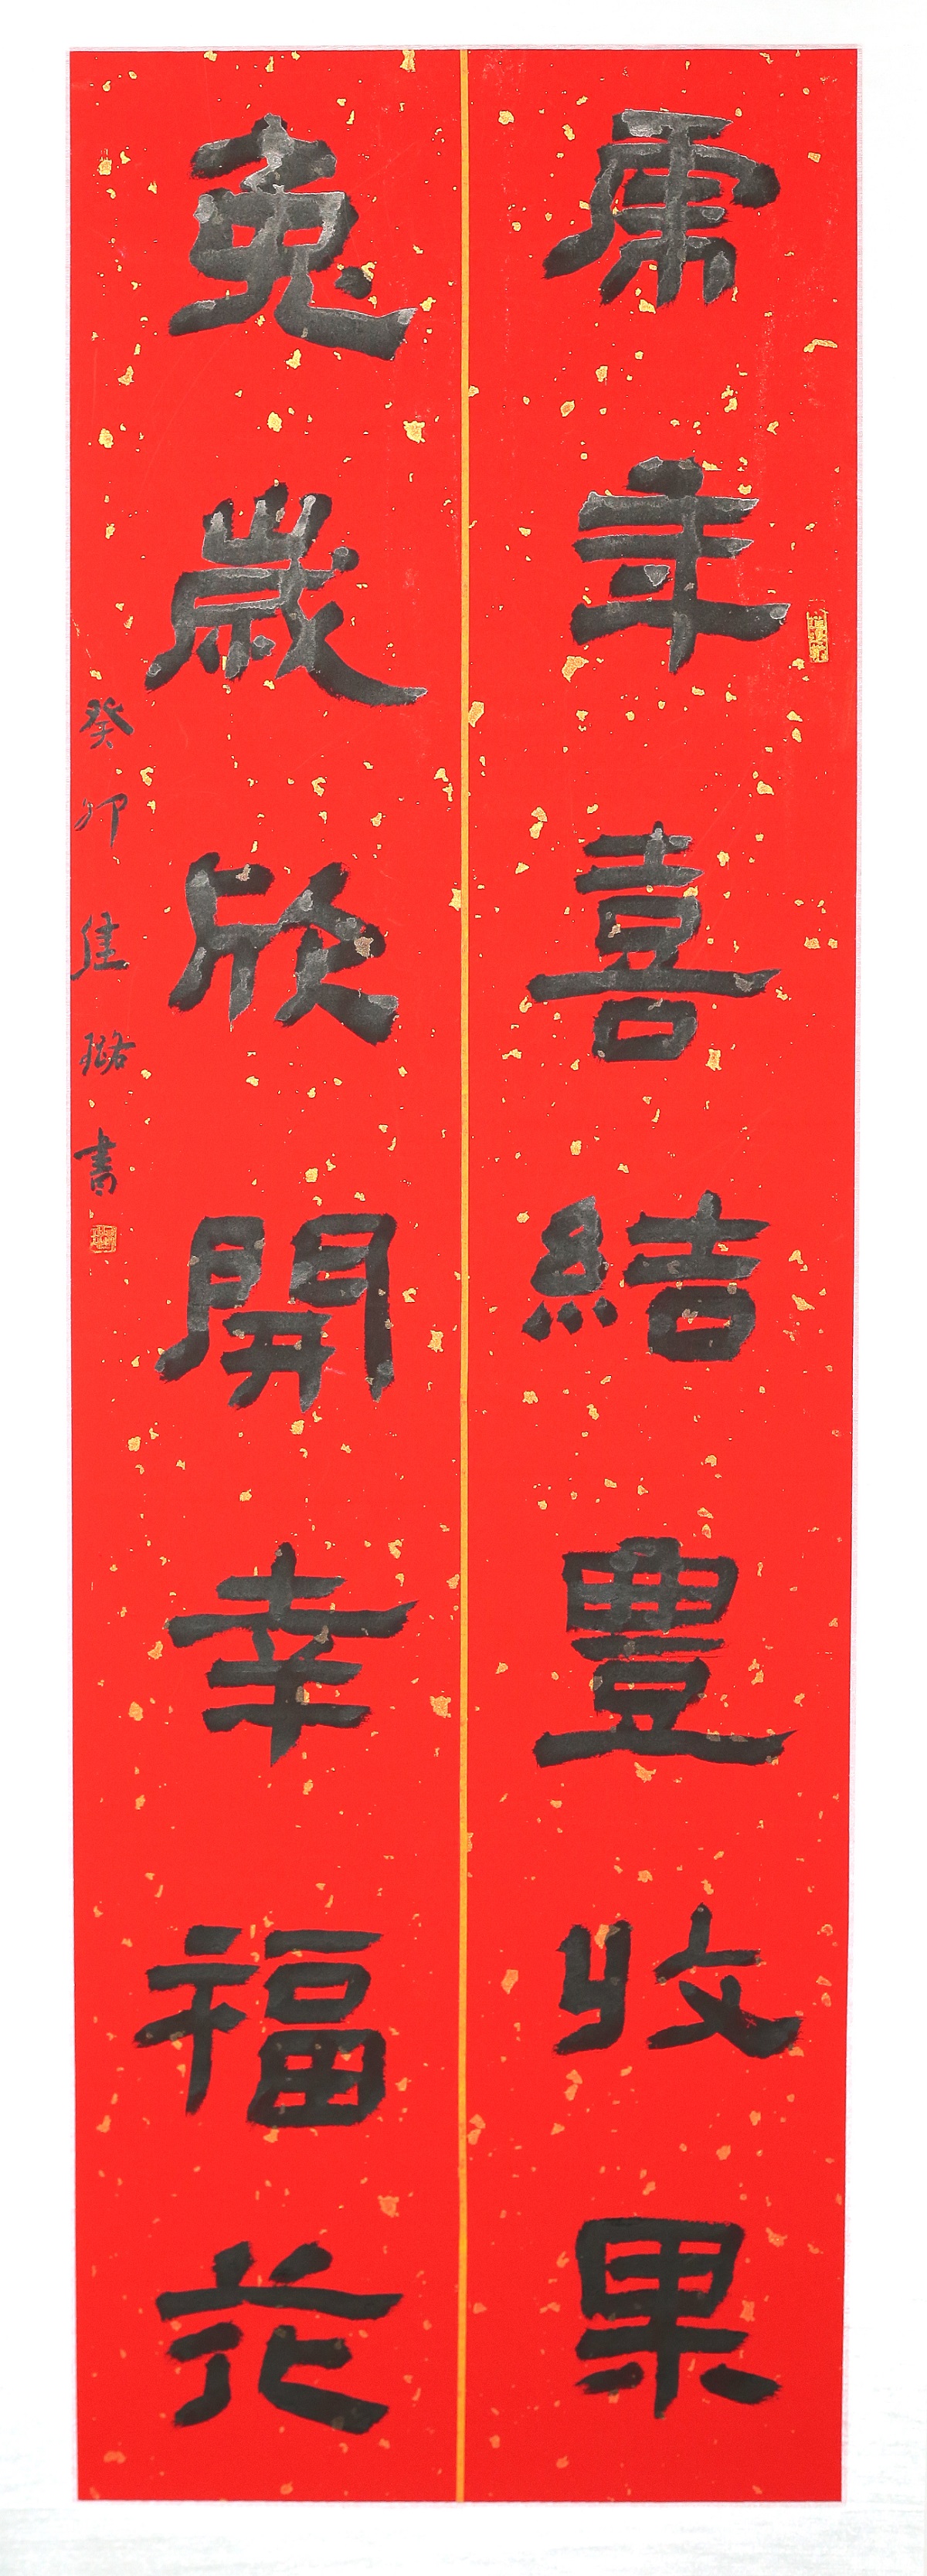 虎年喜結豐收果
兔歲欣開幸福花
癸卯佳璐書